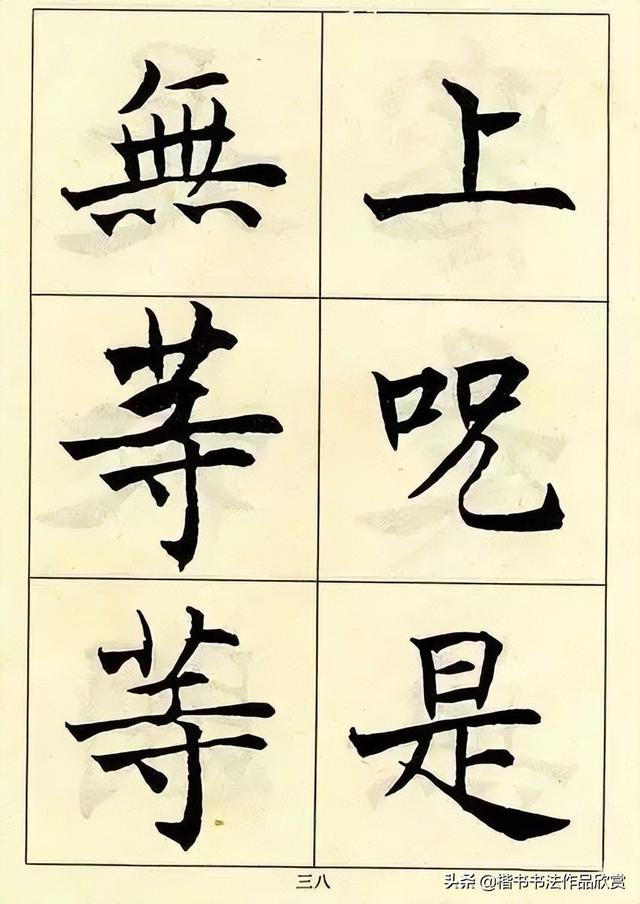 上呪是
無等等
三八
头条 @楷书书法作品欣赏